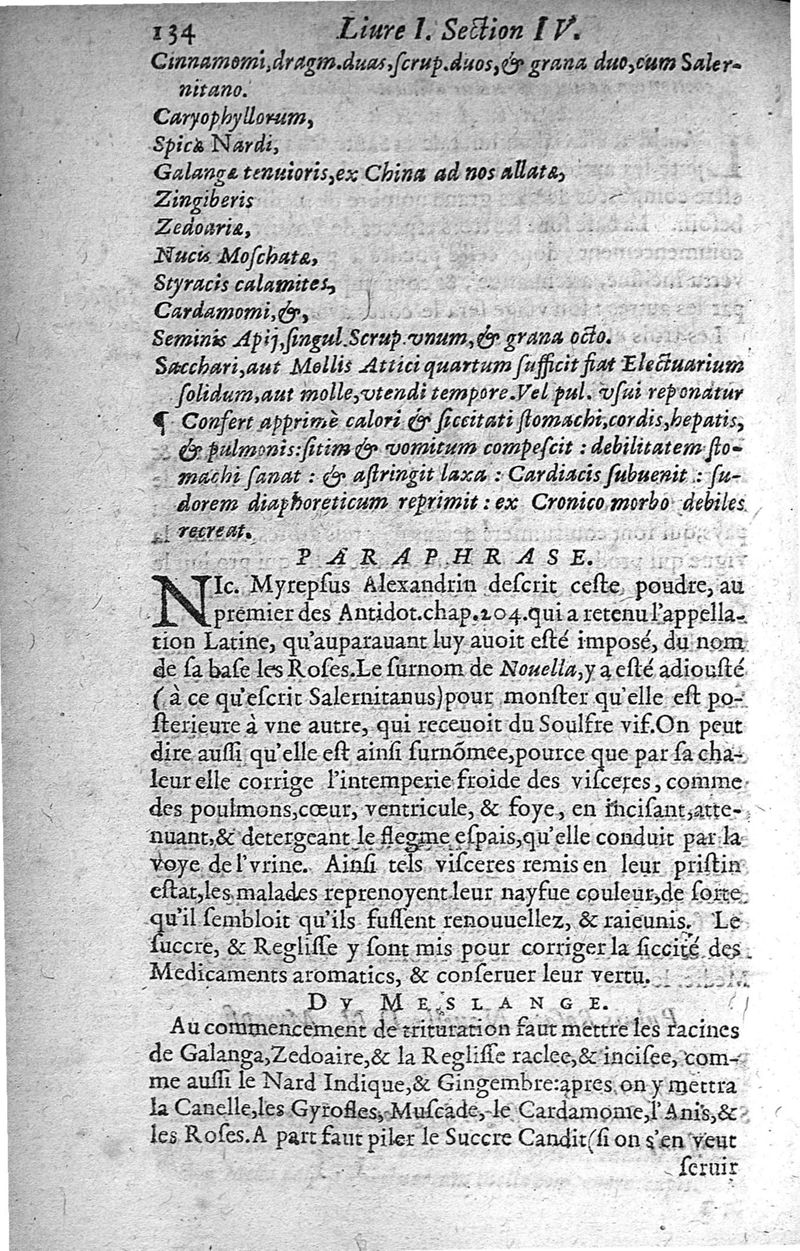 134 Liure I. Section IV.
Cinnamomi, dragm. duas, ſcrup. duos, & grana duo, cum Saler-
nitano.
Caryophyllorum,
Spicæ Nardi,
Galangæ tenuioris, ex China ad nos allatæ,
Zingiberis
Zedoariæ,
Nucis Moſchatæ,
Styracis calamites,
Cardamomi, &,
Seminis Apij, ſingul. Scrup. vnum, & grana octo.
Sacchari, aut Mellis Attici quartum ſufficit fiat Electuarium
ſolidum, aut molle, vtendi tempore. Vel pul. vſui reponatur
¶ Confert apprimè calori & ſiccitati ſtomachi, cordis, hepatis,
& pulmonis: ſitim & vomitum compeſcit : debilitatem ſto-
machi ſanat : & aſtringit laxa : Cardiacis ſubuenit : ſu-
dorem diaphoreticum reprimit : ex Cronico morbo debiles
recreat.
PARAPHRASE.
NIc. Myrepſus Alexandrin deſcrit ceſte poudre, au
premier des Antidot. chap. 204. qui a retenu l'appella-
tion Latine, qu'auparauant luy auoit eſté impoſé, du nom
de ſa baſe les Roſes. Le ſurnom de Nouella, y a eſté adiouſté
( à ce qu'eſcrit Salernitanus) pour monſter qu'elle eſt po-
ſterieure à vne autre, qui receuoit du Soulfre vif. On peut
dire auſſi qu'elle eſt ainſi ſurnõmee, pource que par ſa cha-
leur elle corrige l'intemperie froide des viſceres, comme
des poulmons, cœur, ventricule, & foye, en inciſant, atte-
nuant, & detergeant le flegme eſpais, qu'elle conduit par la
voye de l'vrine. Ainſi tels viſceres remis en leur priſtin
eſtat, les malades reprenoyent leur nayfue couleur, de ſorte
qu'il ſembloit qu'ils fuſſent renouuellez, & raieunis. Le
ſuccre, & Regliſſe y ſont mis pour corriger la ſiccité des
Medicaments aromatics, & conſeruer leur vertu.
DV MESLANGE.
Au commencement de trituration faut mettre les racines
de Galanga, Zedoaire, & la Regliſſe raclee, & inciſee, com-
me auſſi le Nard Indique, & Gingembre: apres on y mettra
la Canelle, les Gyrofles, Muſcade, le Cardamome, l'Anis, &
les Roſes. A part faut piler le Succre Candit (ſi on s'en veut
ſeruir